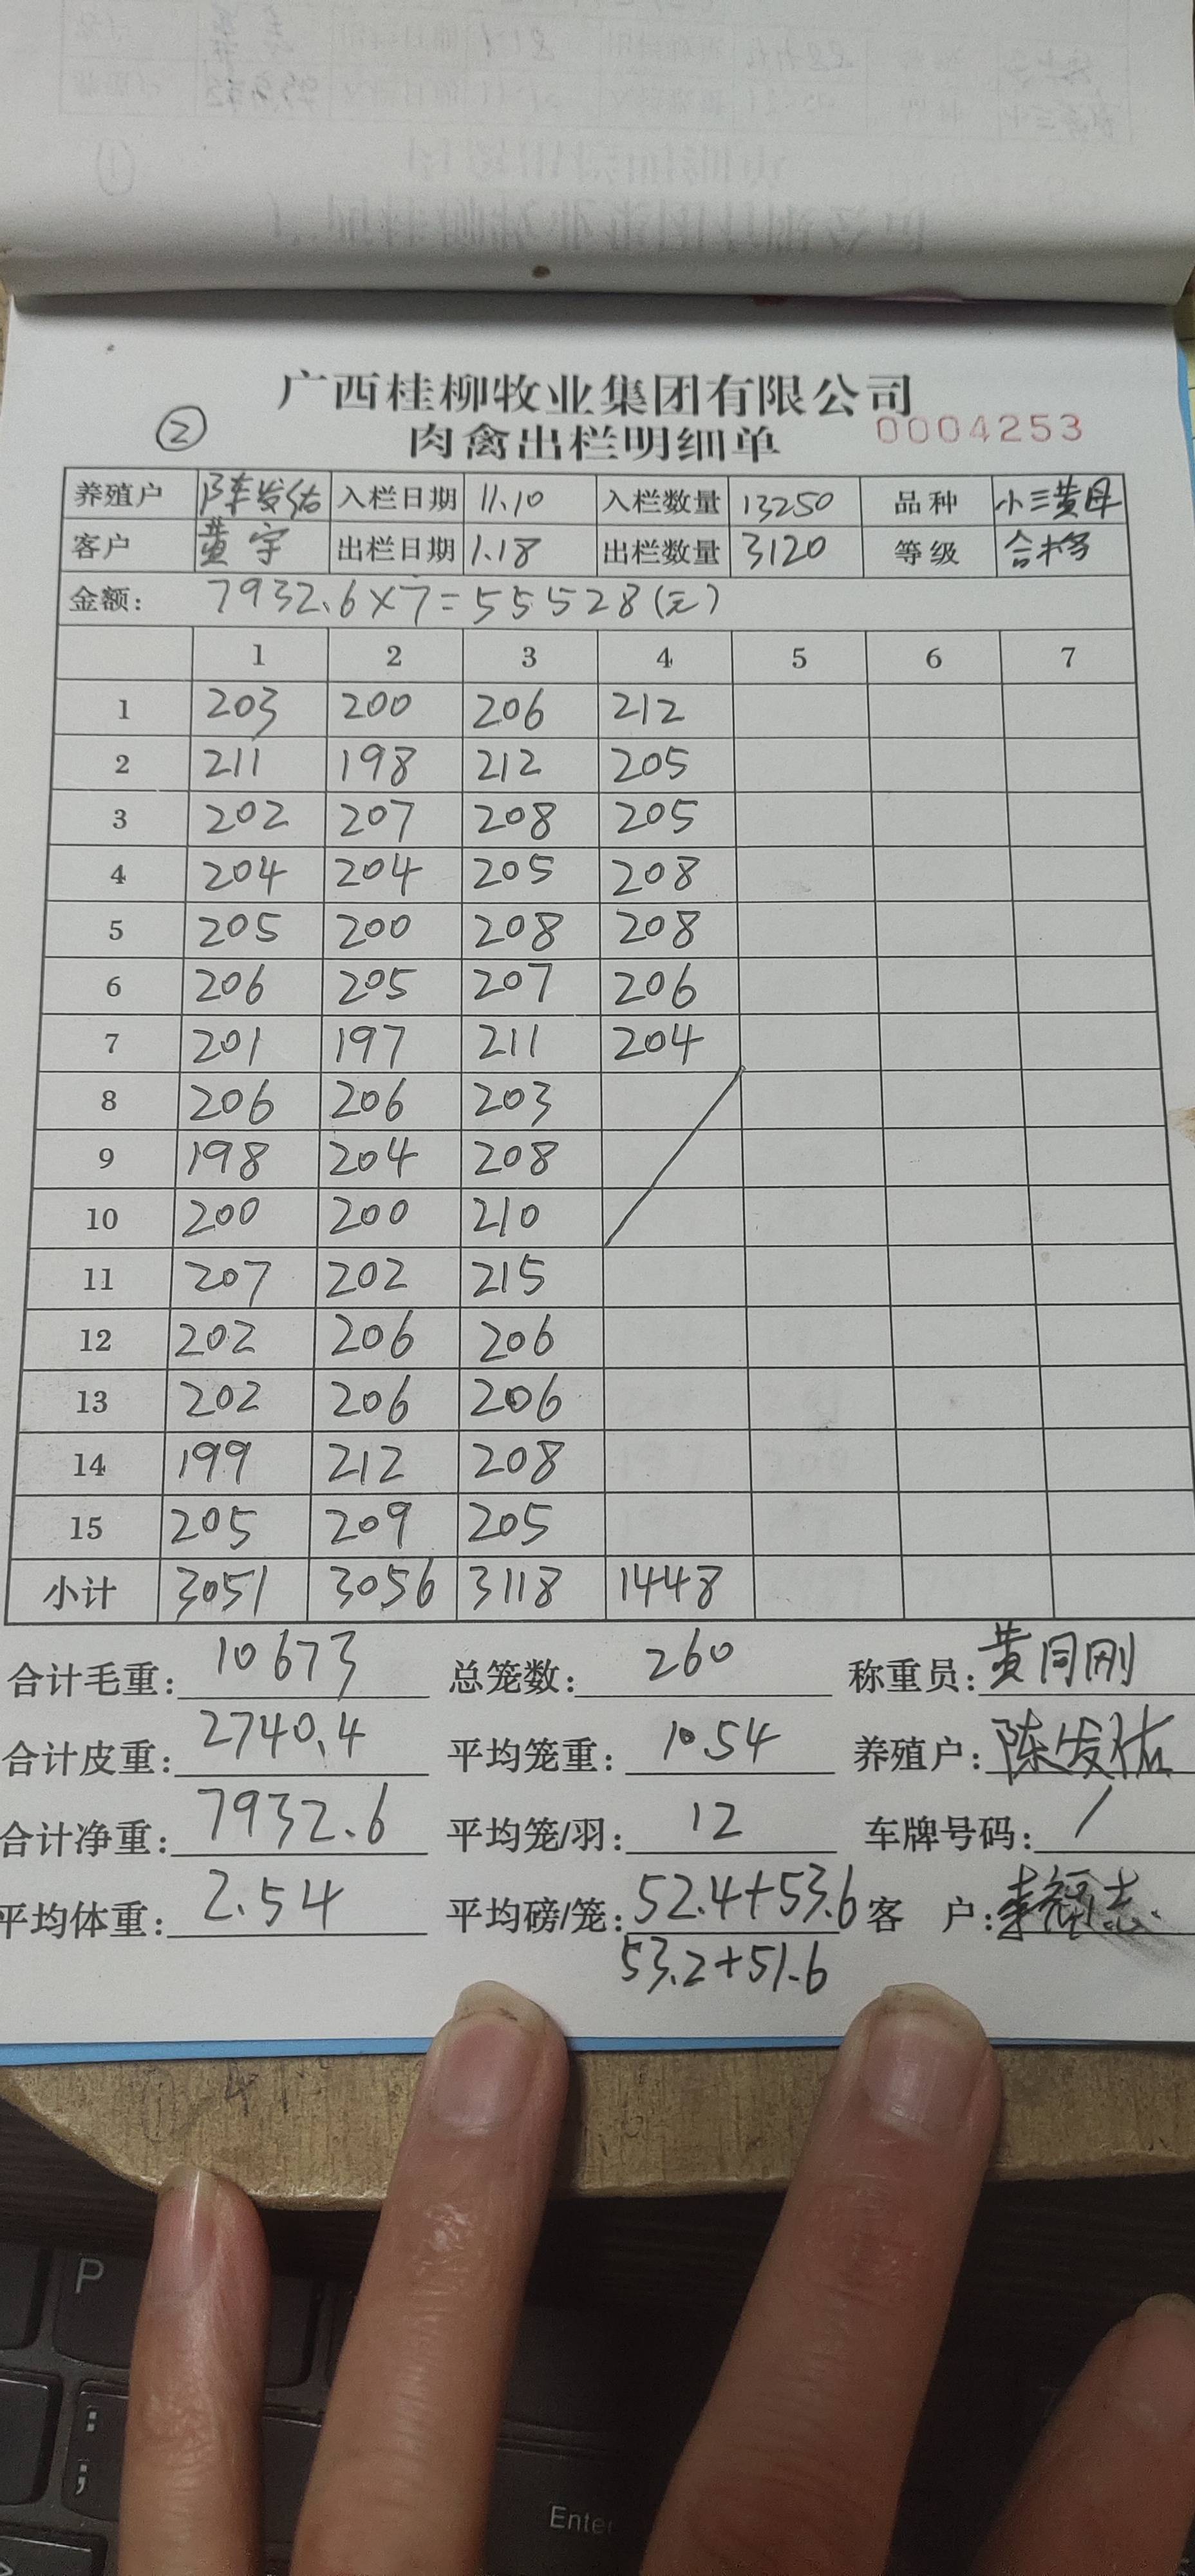 广西桂柳牧业集团有限公司
② 肉禽出栏明细单 0004253
养殖户 陈发佑 入栏日期 11.10 入栏数量 13250 品种 小三黄母
客户 黄宇 出栏日期 1.18 出栏数量 3120 等级 合格
金额: 7932.6×7=55528(元)
1 2 3 4 5 6 7
1 203 200 206 212
2 211 198 212 205
3 202 207 208 205
4 204 204 205 208
5 205 200 208 208
6 206 205 207 206
7 201 197 211 204
8 206 206 203
9 198 204 208
10 200 200 210
11 207 202 215
12 202 206 206
13 202 206 206
14 199 212 208
15 205 209 205
小计 3051 3056 3118 1448
合计毛重: 10673 总笼数: 260 称重员: 黄同刚
合计皮重: 2740.4 平均笼重: 10.54 养殖户: 陈发佑
合计净重: 7932.6 平均笼/羽: 12 车牌号码: /
平均体重: 2.54 平均磅/笼: 52.4+53.6 客 户: 李福志
53.2+51.6
P
:
;
Enter